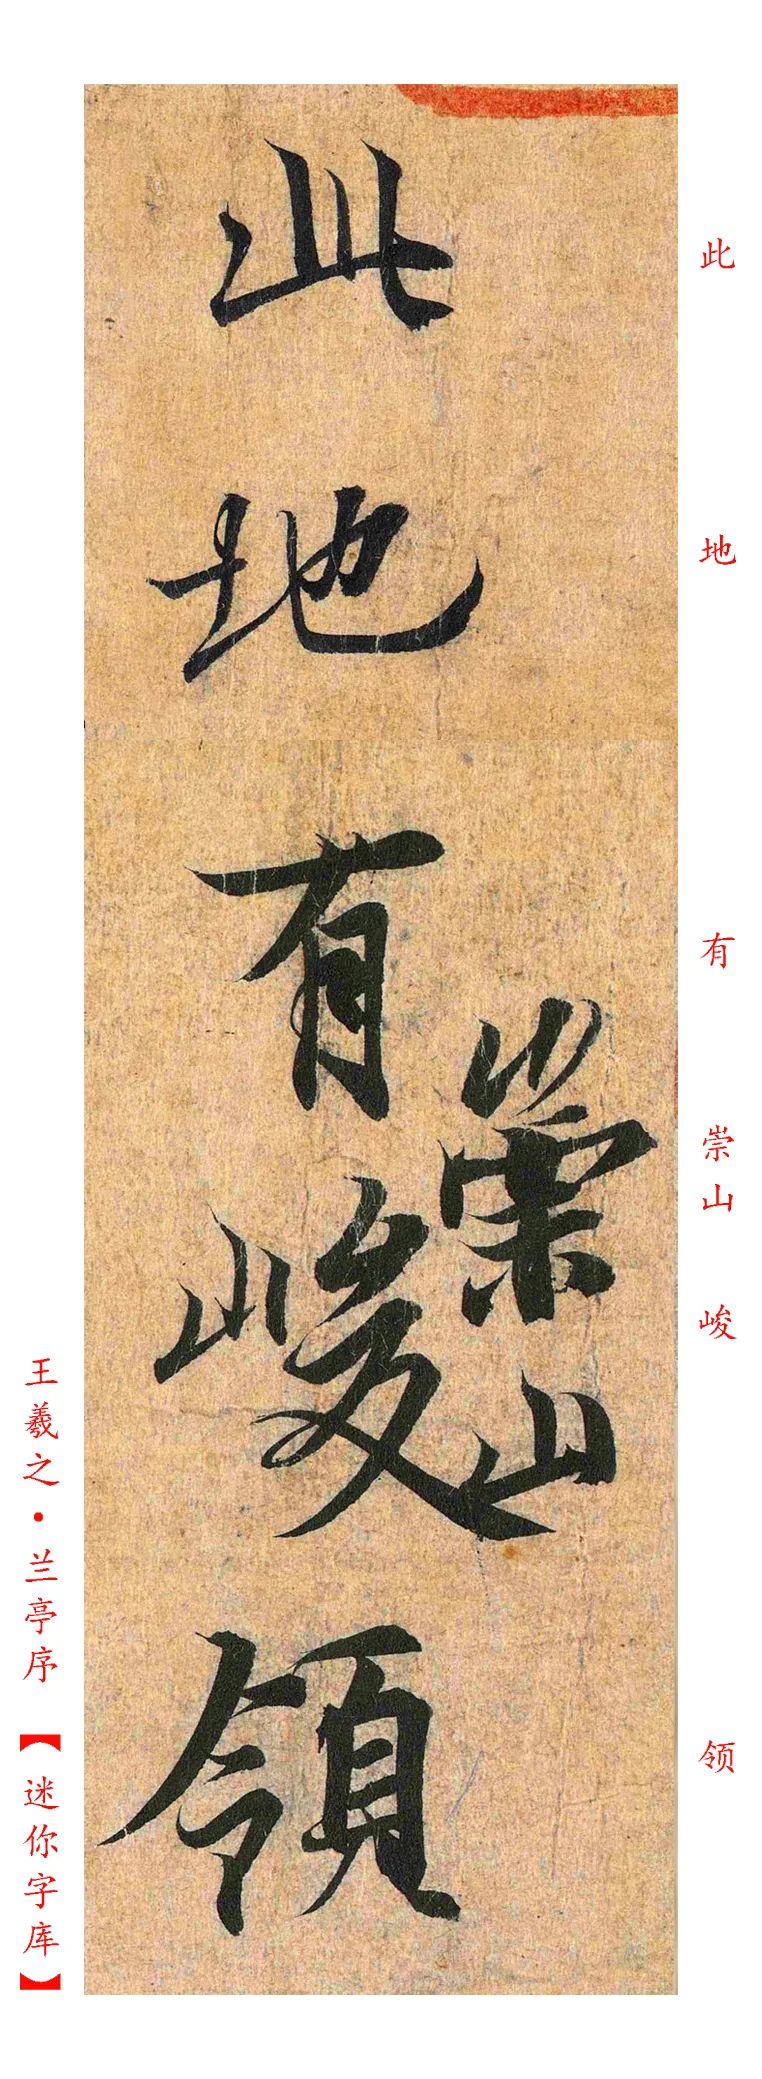 此地有崇山峻領
此地有崇山峻领
王羲之·兰亭序【迷你字库】